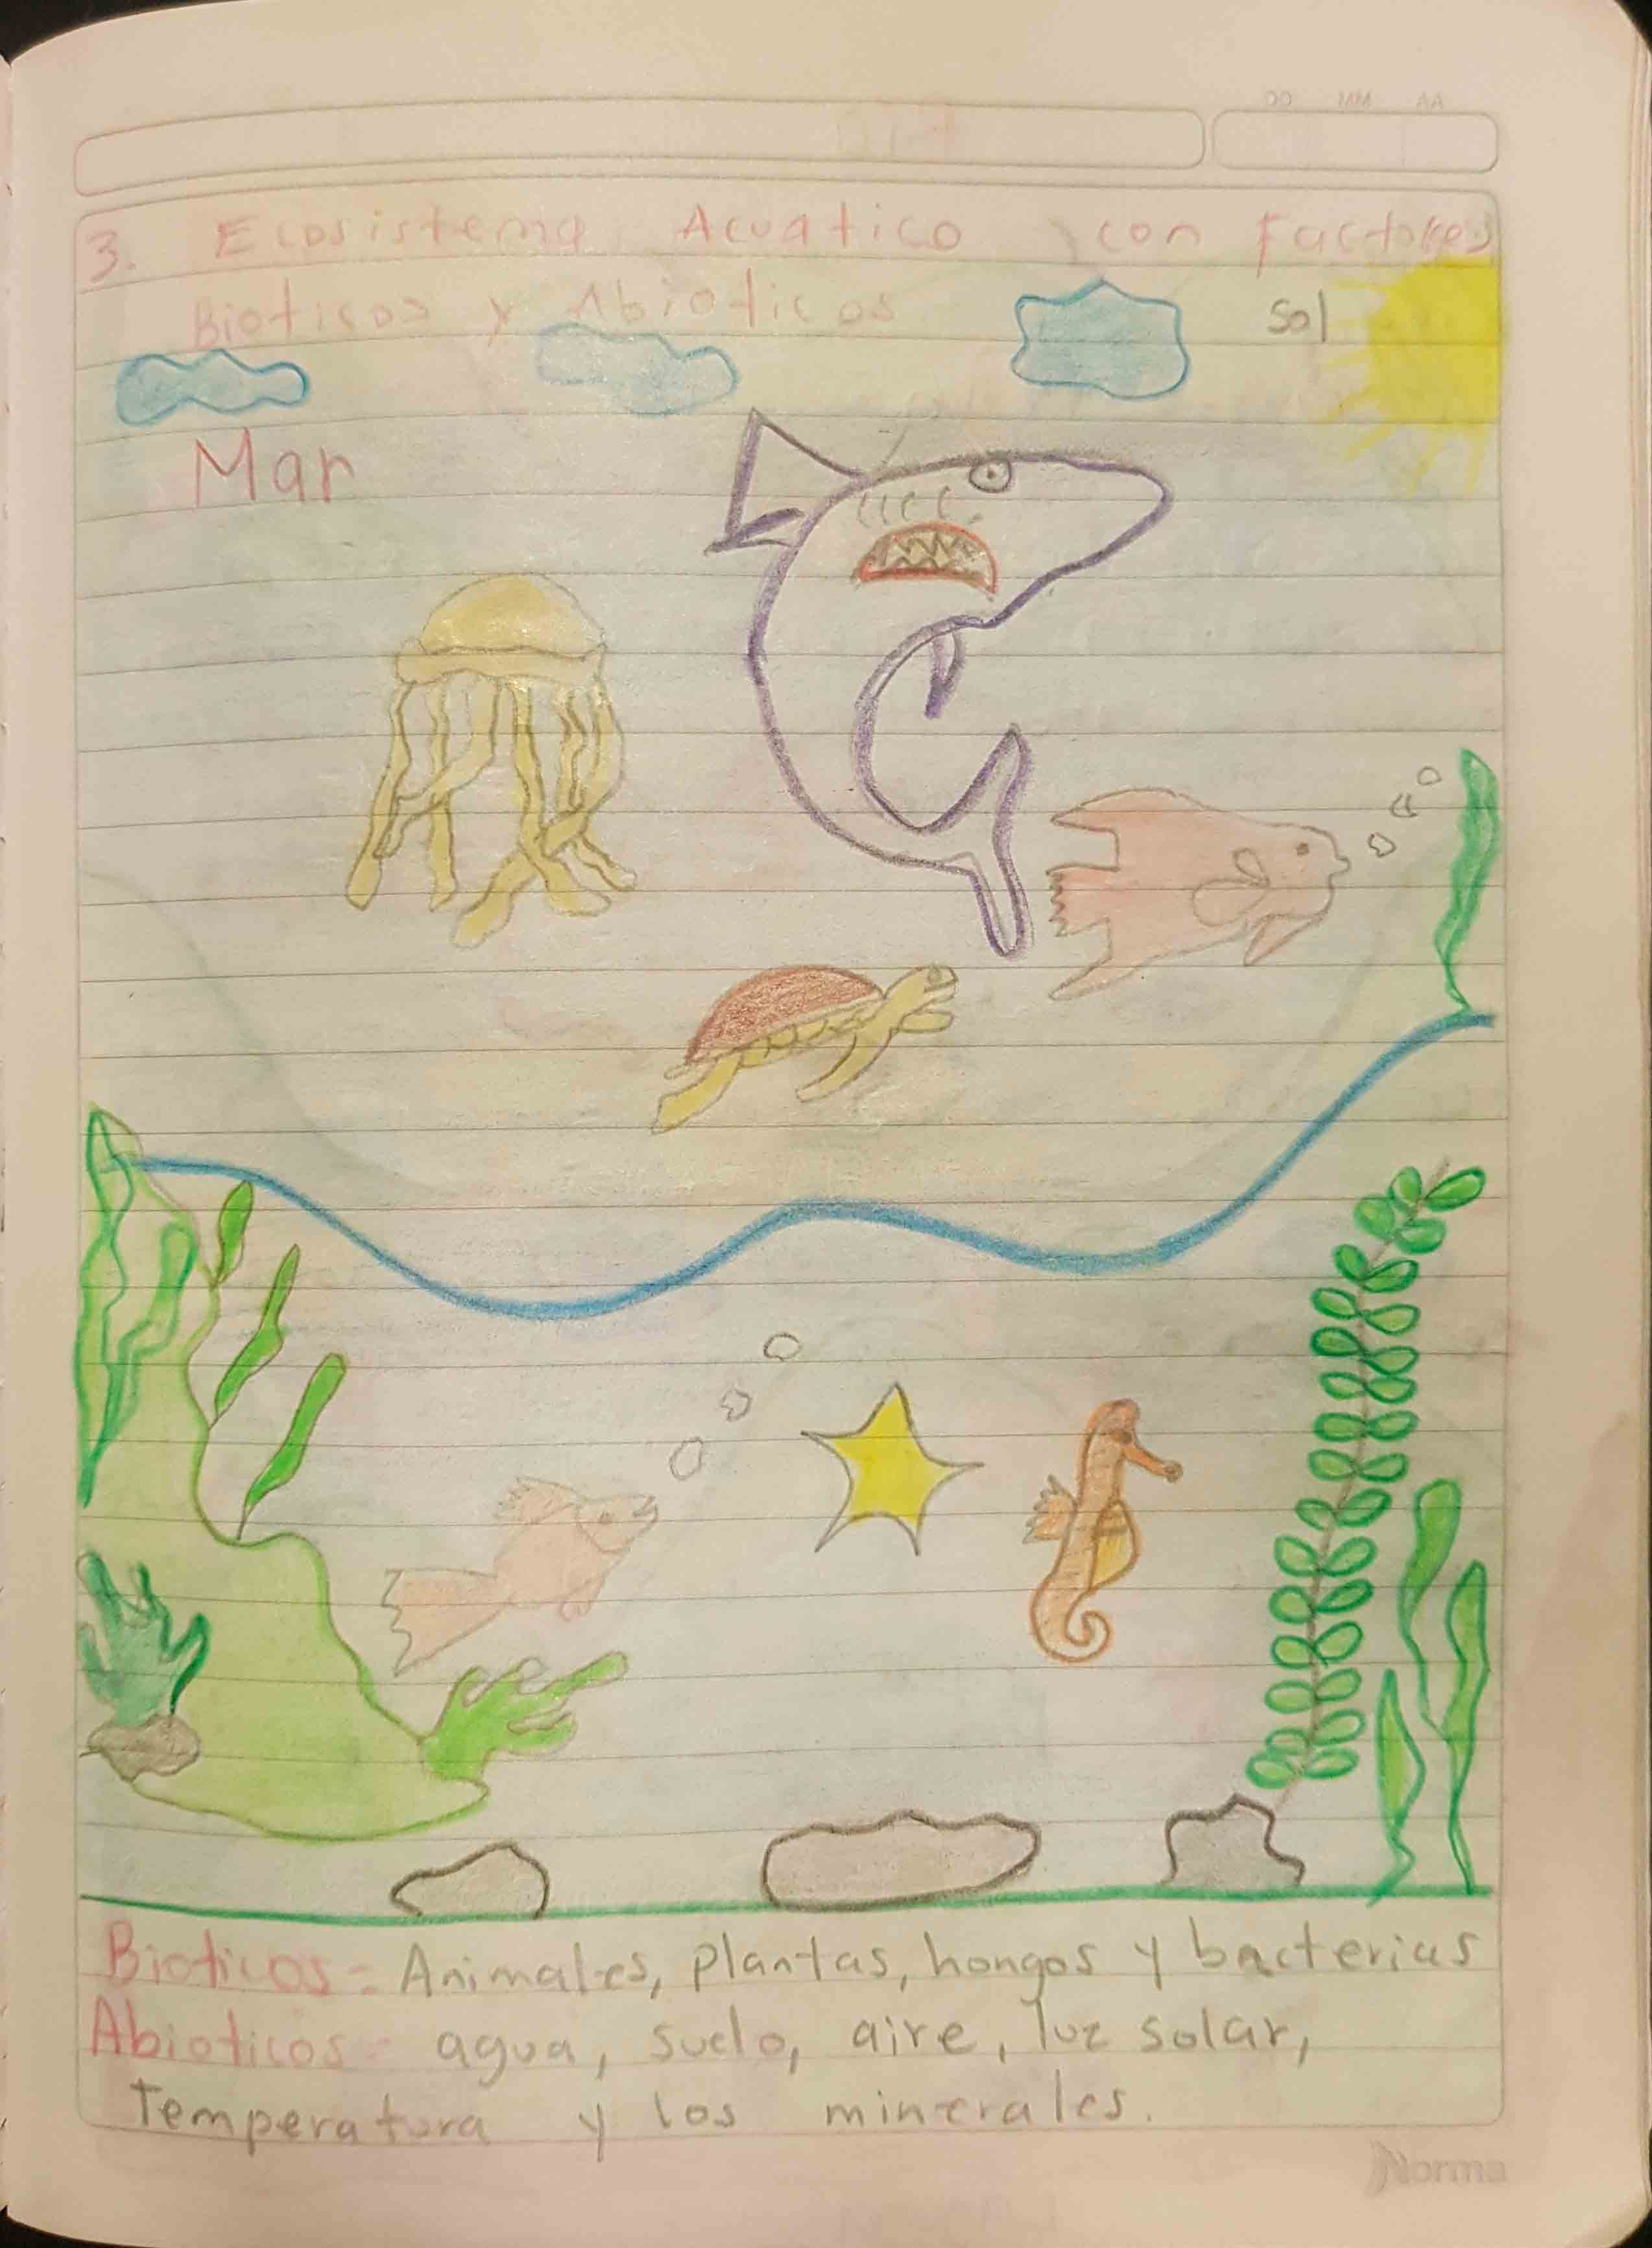 AA MM DD
3. Ecosistema Acuatico con Factores
Bioticos y Abioticos
Sol
Mar
Bioticos = Animales, plantas, hongos y bacterias
Abioticos = agua, suelo, aire, luz solar,
Temperatura y los minerales.
Norma